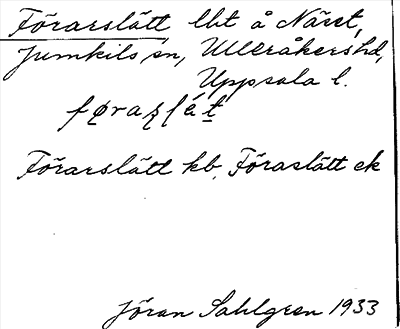 Förarslätt, lht å Näret,
Jumkils sn, Ulleråkers hd,
Uppsala l.
Förarslätt kb, Föraslätt ek
Jöran Sahlgren 1933